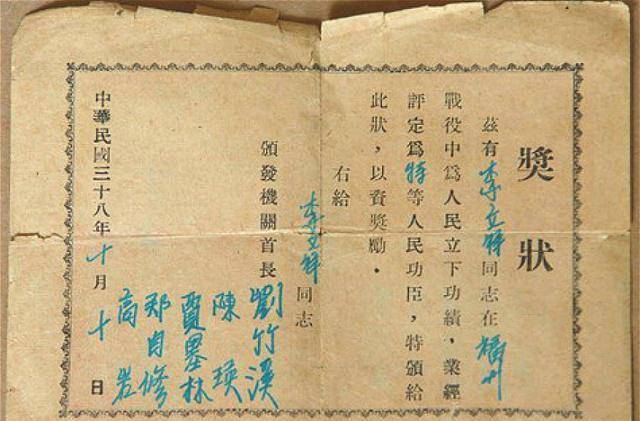 獎狀
茲有李立祥同志在福州
戰役中爲人民立下功績，業經
評定爲特等人民功臣，特頒給
此狀，以資獎勵．
右給
李立祥同志
頒發機關首長
劉竹溪
陳瑛
賈墨林
郑自修
高岩
中華民國三十八年十月十日